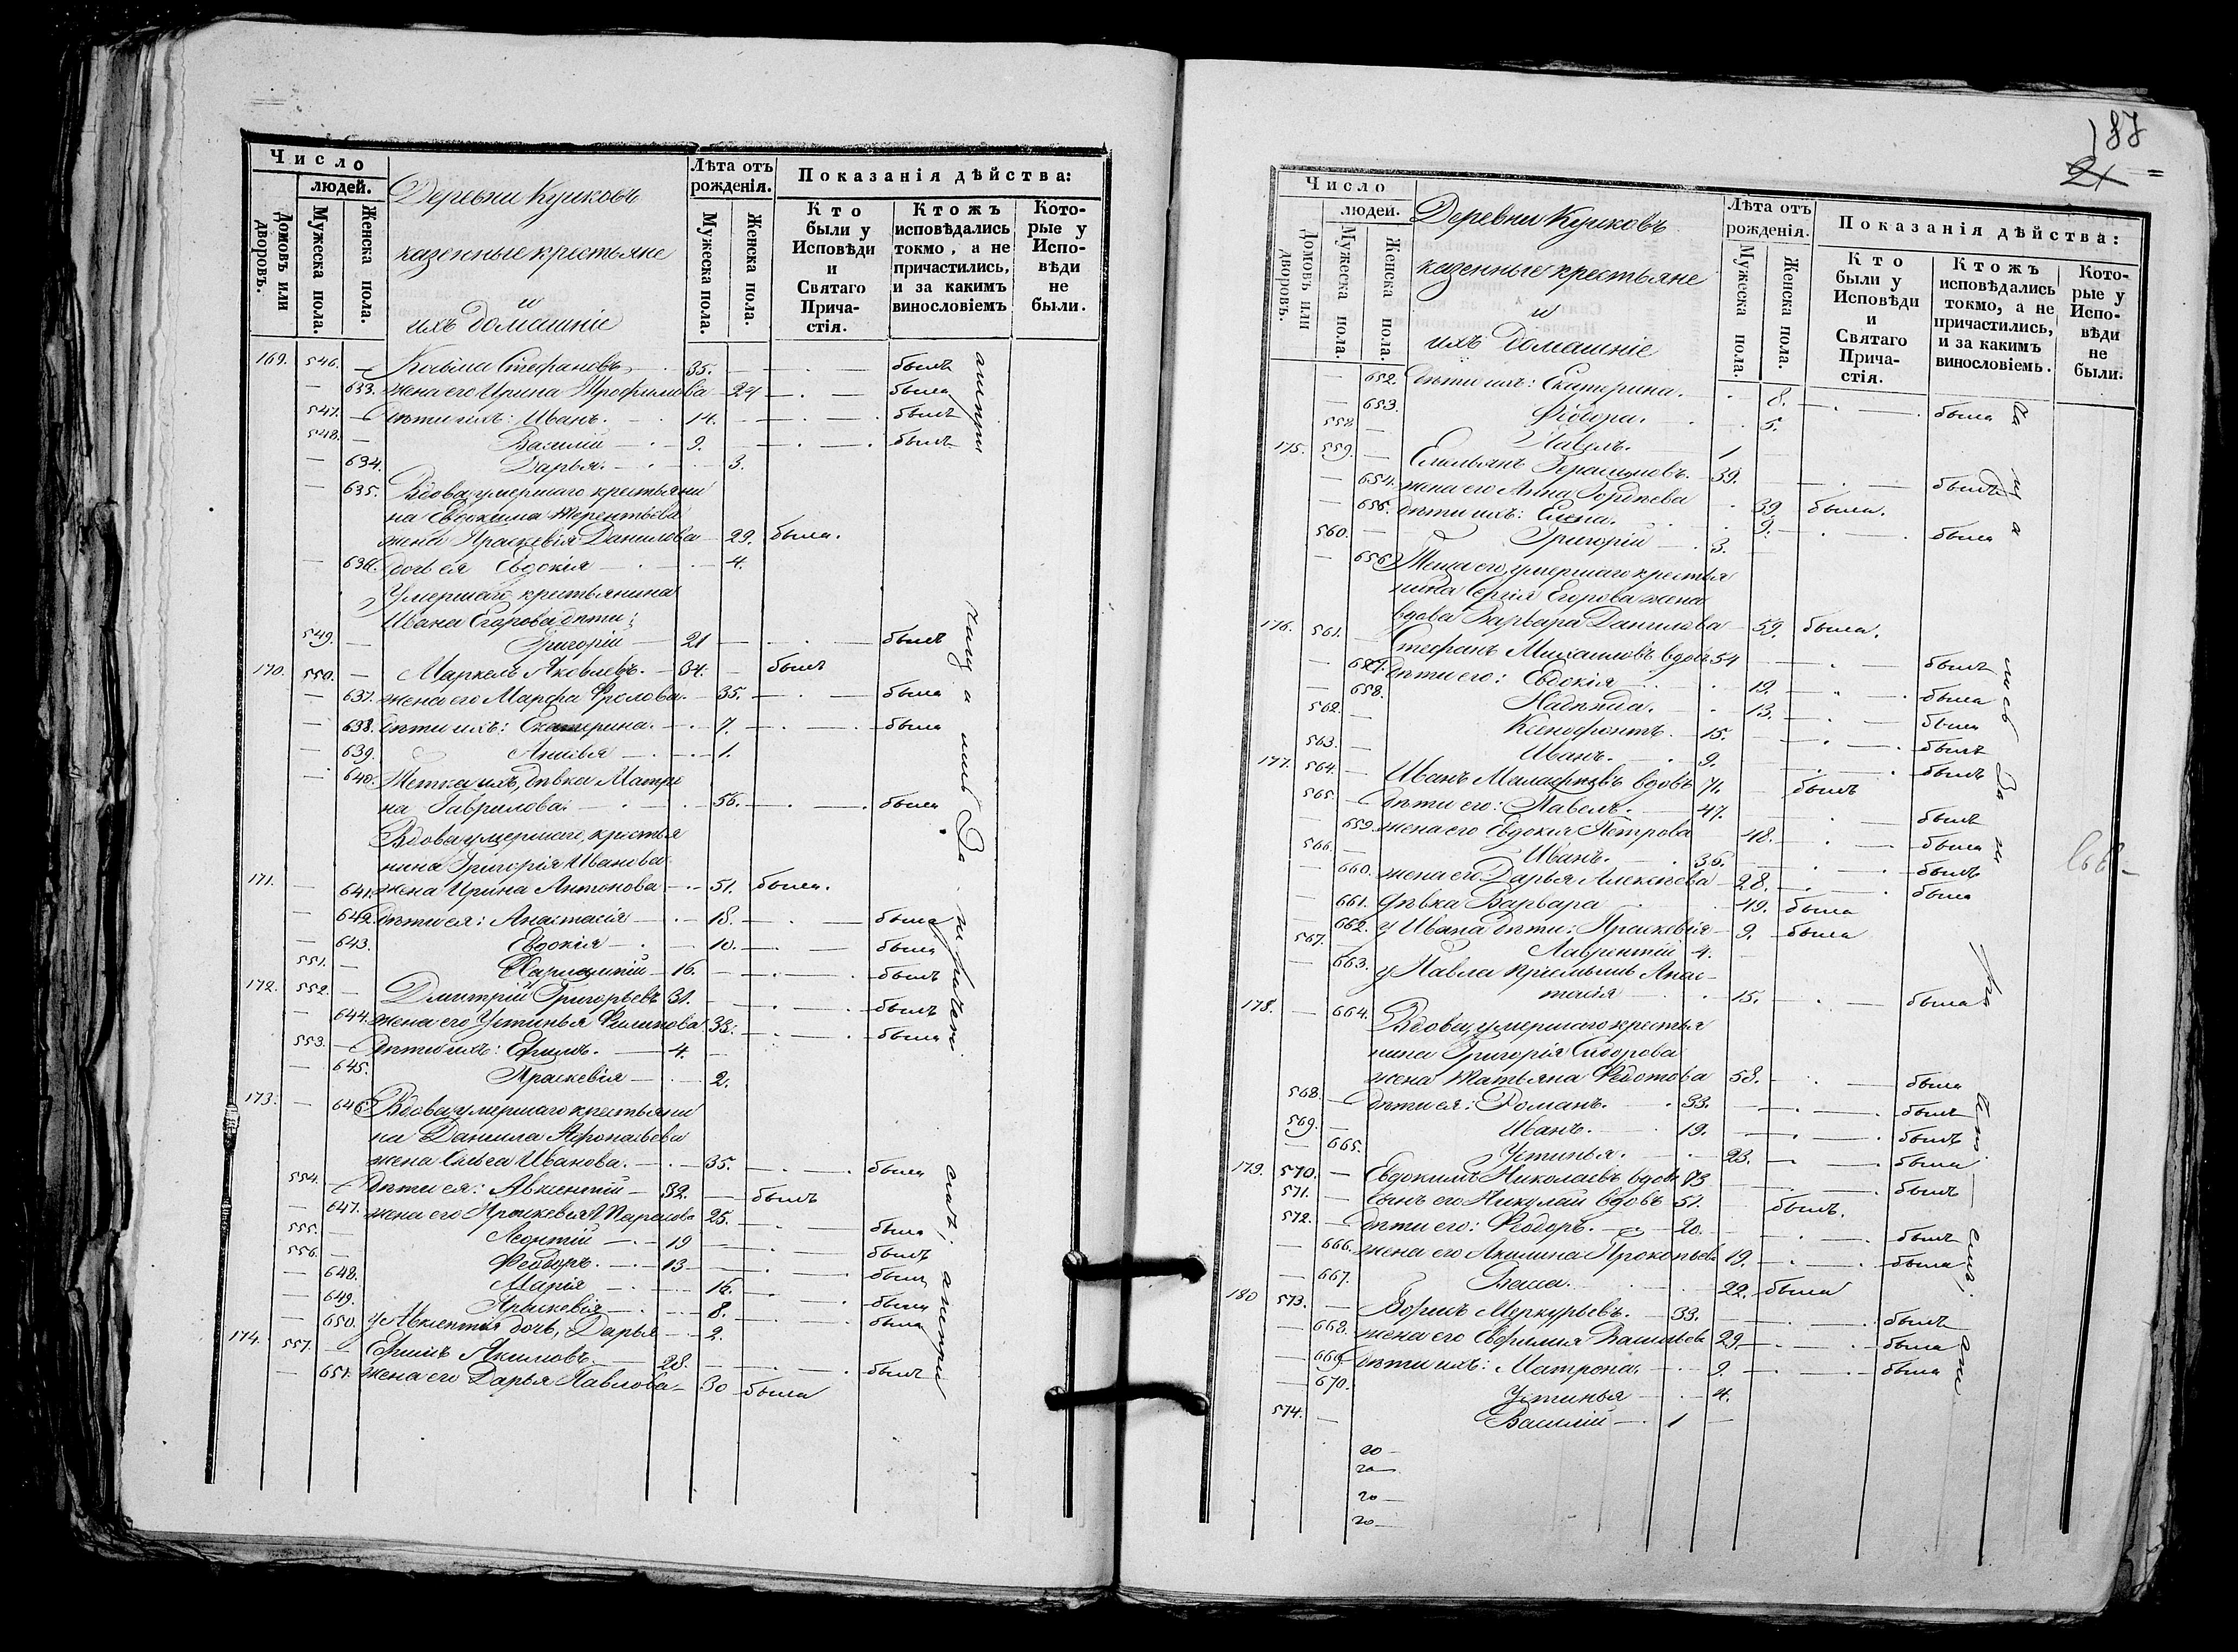 Число
людей.
Домовъ или дворовъ.
Мужеска пола.
Женска пола.
Деревни Куликовъ
казенные крестьяне
и
ихъ домашніе
Лѣта отъ рожденія.
Мужеска пола.
Женска пола.
Показанія дѣйства:
Кто были у Исповѣди и Святаго Причастія.
Ктожъ исповѣдались токмо, а не причастились, и за какимъ винословіемъ
Которые у Исповѣди не были.
169. 546. — Косьма Стефановъ 35. — былъ
— 633. жена его Ирина Трофимова 24 — была
547. — дѣти ихъ: Иванъ. 14. — былъ
548. — Василій 9. — былъ
— 634. Дарья. 3.
— 635. Вдова, умершаго крестьяни
на Евдокима Терентьева
жена Праскевія Данилова 29. была.
— 636. дочь ея Евдокія 4.
Умершаго крестьянина
Ивана Егорова дѣти:
549. — Григорій 21 — былъ
170. 550. — Маркелъ Яковлевъ. 34. — былъ
— 637. жена его Марфа Фролова. 35. — была
— 638. дѣти ихъ: Екатерина. 7. — была
— 639. 1.
— 640. Тетка ихъ, дѣвка Матре
на Гаврилова. 56. — была
Вдова умершаго крестья
нина Григорія Иванова
171. — 641. жена Ирина Антонова 51. была.
— 642. дѣти ея: Анастасія 18. — была
— 643. Евдокія 10. — была
551. — Харлампій 16. — былъ
172. 552. — Дмитрій Григорьевъ 31. — былъ
— 644. жена его Устинья Филипова 33. — была
553. — дѣти ихъ: Ефимъ. 4. —
— 645. Праскевія 2.
173. — 646. Вдова умершаго крестьяни
на Данила
жена Иванова. 35. — была
554. — дѣти ея: Авксентій 32. — былъ
— 647. жена его Праскевія 25. — была
555. — Леонтій 19 — былъ
556. — Феодоръ. 13 — былъ
— 648. Марія 16. — была
— 649. Праскевія 8. — была
— 650. у Авксентія дочь, Дарья 2.
174. 557. — Ефимъ Якимовъ. 28. — былъ
— 651. жена его Дарья Павлова 30 была
187
21
Число
людей.
Домовъ или дворовъ.
Мужеска пола.
Женска пола.
Деревни Куликовъ
казенные крестьяне
и
ихъ домашніе
Лѣта отъ рожденія.
Мужеска пола.
Женска пола.
Показанія дѣйства:
Кто были у Исповѣди и Святаго Причастія.
Ктожъ исповѣдались токмо, а не причастились, и за какимъ винословіемъ.
Которые у Исповѣди не были.
— 652. дѣти ихъ: Екатерина. 8. — была
— 653. Феодора. 5.
558. — Павелъ. 1
175. 559. — Емельянъ Герасимовъ. 39. — былъ
— 654. жена его Анна Гордѣева 39 была.
— 655. дѣти ихъ: Елена. 9. — была
560. — Григорій 3.
— 656. Теща его, умершаго крестья
нина Сергія Егорова жена
вдова Варвара Данилова 59. была.
176. 561. — Стефанъ Михаиловъ вдовъ 54 — былъ
— 657. дѣти его: Евдокія 19. — была
— 658. Надежда. 13. — была
562. — Ксенофонтъ. 15. — былъ
563. — Иванъ. 9. — былъ
177. 564. — Иванъ Малафѣевъ вдовъ 71. — былъ
565. — дѣти его: Павелъ. 47. — былъ
— 659. жена его Евдокія Петрова 48. — была
566. — Иванъ. 36. — былъ
— 660. жена его Дарья Алексѣева 28. — была
— 661. дѣвка Варвара 49. была
— 662. у Ивана дѣти: Праскевія 9. была
567. — Лаврентій 4. —
— 663. у Павла пріемышъ Анас-
тасія 15. — была
178. — 664. Вдова, умершаго крестья
нина Григорія Сидорова
жена Татьяна Федотова 58. — была
568. — дѣти ея: Романъ. 33. — былъ
569. — Иванъ. 19. — былъ
— 665. Устинья. 23. — была
179. 570. — Евдокимъ Николаевъ вдовъ 73 — былъ
571. — сынъ его Николай вдовъ 51. былъ.
572. — дѣти его: Феодоръ. 20. — былъ
— 666. жена его Акилина Прокопьева 19. — была
— 667. Васса. 22. была
180 573. — Борисъ Меркурьевъ. 33. — былъ
— 668. жена его Евфимия Васильева 29. — была
— 669. дѣти ихъ: Матрона. 9. — была
— 670. Устинья 4.
574. — Василій 1 —